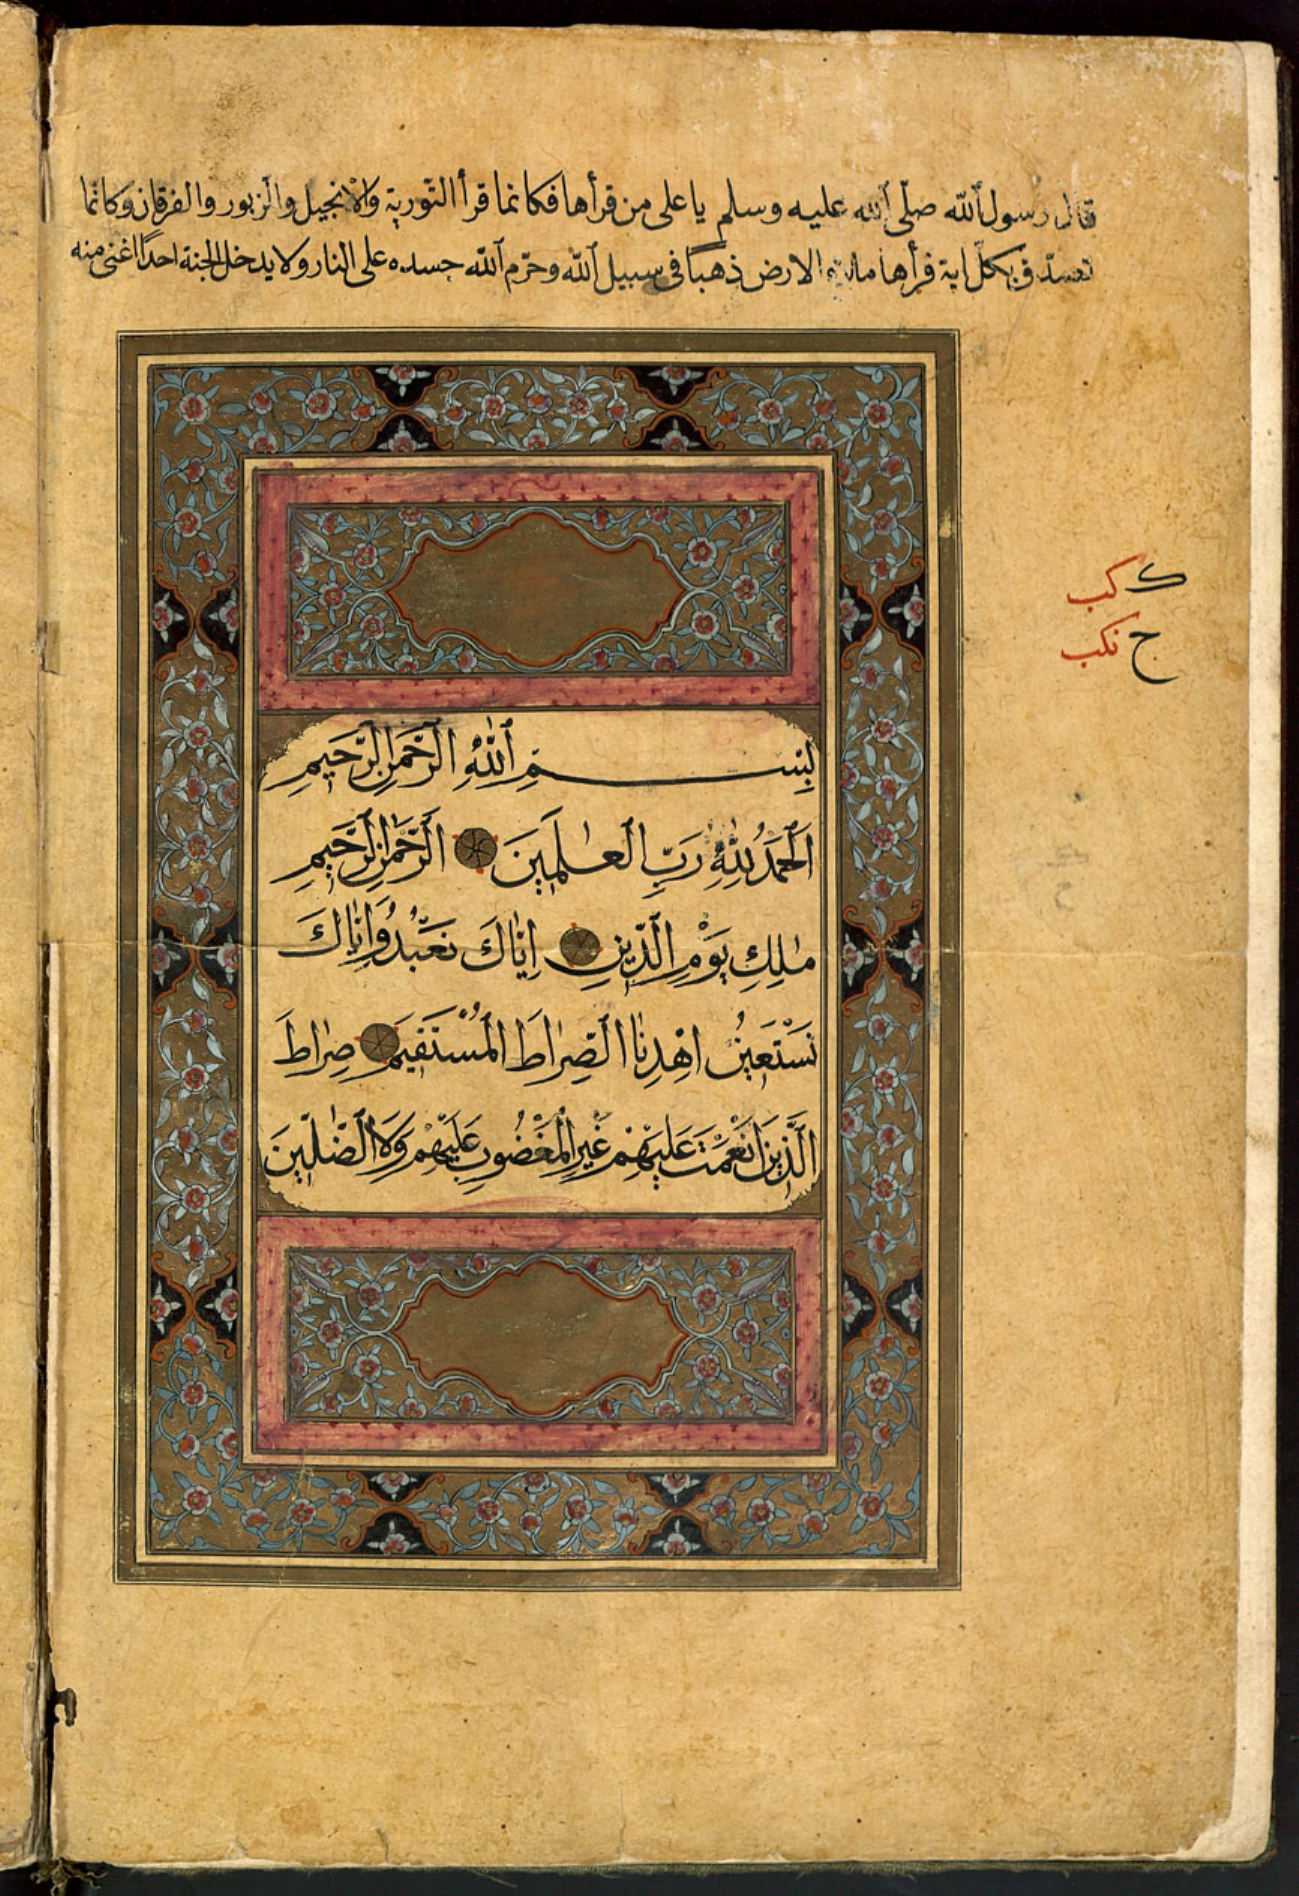 قال رسول ٱللّه صلّى ٱللّه عليه وسلم يا على من قرأها فكانما قرأ التّورية والانجيل والزبور والفرقان وكانما
تصدّق بكلّ اية قرأها ملاء الارض ذهبًا فى سبيل ٱللّه وحرّم ٱللّه جسده على النار ولا يدخل الجنة احدًا اغنى منه
ك كب
ج نكب
بِسْمِ ٱللّٰهِ الرَّحْمٰنِ الرَّحِيمِ
اَلْحَمْدُ لِلّٰهِ رَبِّ الْعٰلَمِينَ الرَّحْمٰنِ الرَّحِيمِ
مٰلِكِ يَوْمِ الدِّينِ اِيّٰاكَ نَعْبُدُ وَاِيّٰاكَ
نَسْتَعِينُ اهْدِنٰا الصِّرٰاطَ الْمُسْتَقِيمَ صِرٰاطَ
الَّذِينَ اَنْعَمْتَ عَلَيْهِمْ غَيْرِ الْمَغْضُوبِ عَلَيْهِمْ وَلَا الضّٰلّٖينَ